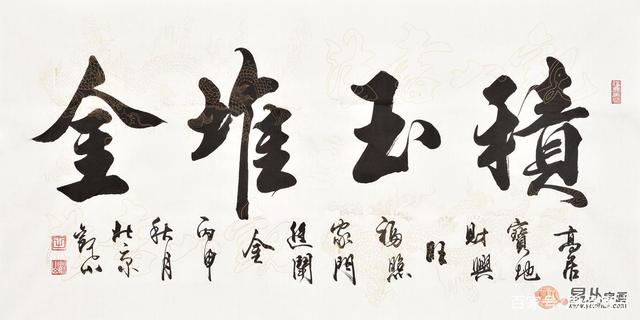 積玉堆金
高居
寶地
財興
旺
福照
家門
金
丙申
秋月
北京
百家号